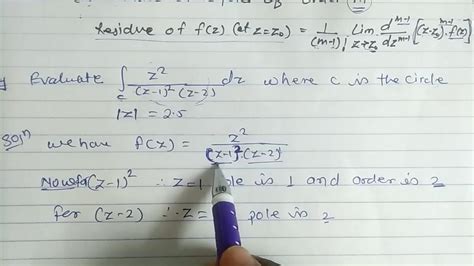 Residue of f(z) (at z=z₀) = 1/(m-1)! Lim z→z₀ d^(m-1)/dz^(m-1) [(z-z₀)^m · f(z)]
Evaluate ∫_C z²/((z-1)² (z-2)) dz where c is the circle
|z| = 2.5
Solⁿ we have f(z) = z²/((z-1)² · (z-2)¹)
Now for (z-1)² ∴ z=1 pole is 1 and order is 2
for (z-2) ∴ z= pole is 2